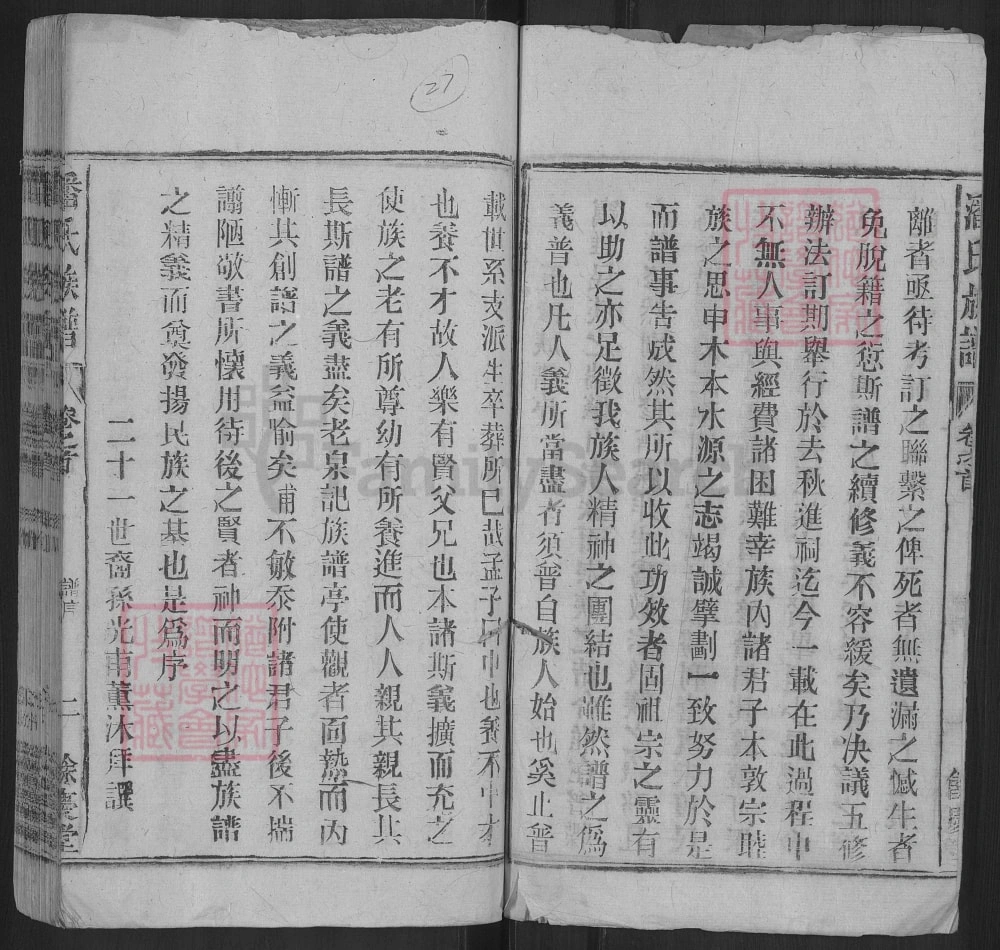 潘氏族譜 卷之首
離者亟待考訂之聯繫之俾死者無遺漏之憾生者
免脫籍之愆斯譜之續修義不容緩矣乃決議五修
辦法訂期舉行於去秋進祠迄今一載在此過程中
不無人事與經費諸困難幸族內諸君子本敦宗睦
族之思申木本水源之志竭誠擘劃一致努力於是
而譜事告成然其所以收此功效者固祖宗之靈有
以助之亦足徵我族人精神之團結也雖然譜之為
義普也凡人義所當盡者須普自族人始也奚止普
27
載世系支派生卒葬所已哉孟子曰中也養不中才
也養不才故人樂有賢父兄也本諸斯義擴而充之
使族之老有所尊幼有所養進而人人親其親長其
長斯譜之義盡矣老泉記族譜亭使觀者面熱而內
慚其創譜之義益愉矣甫不敏忝附諸君子後不揣
譾陋敬書所懷用待後之賢者神而明之以盡族譜
之精義而奠發揚民族之基也是爲序
二十一世裔孫光甫薰沐拜譔
潘氏族譜 卷之首 譜序 二 餘慶堂
FamilySearch